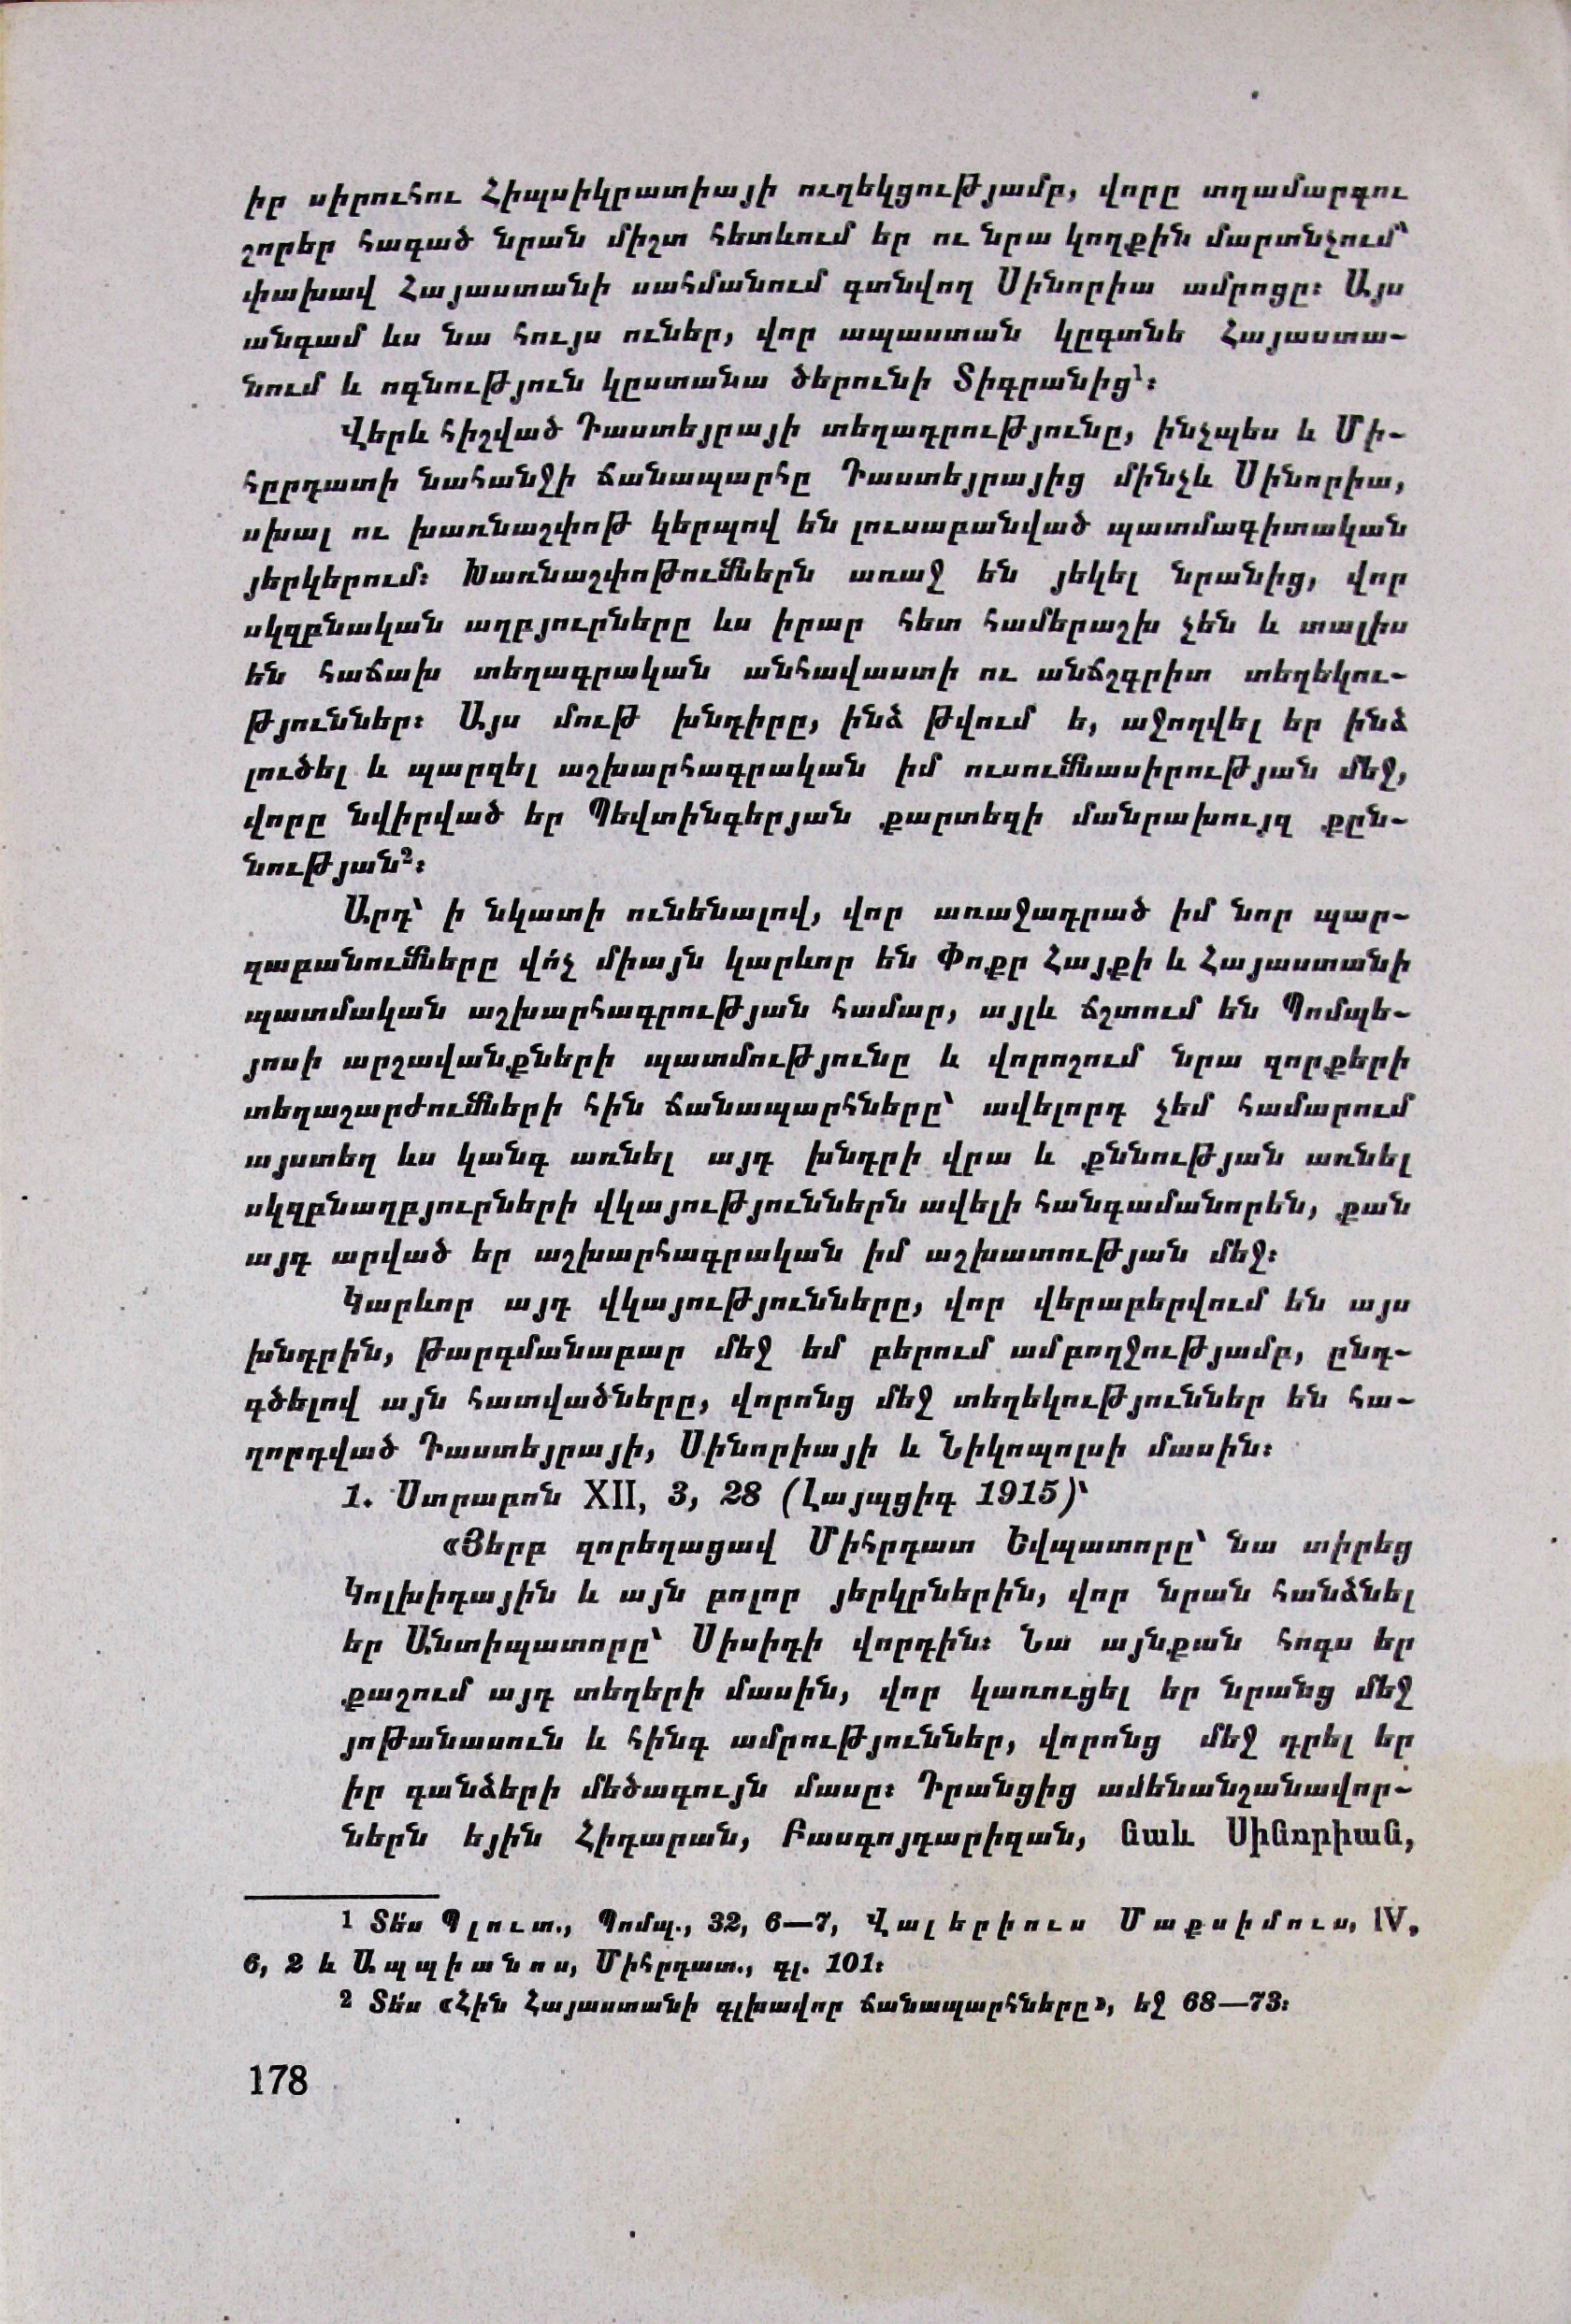 իր սիրուհու Հիպսիկրատիայի ուղեկցությամբ, վորը տղամարդու
շորեր հագած նրան միշտ հետևում եր ու նրա կողքին մարտնչում՝
փախավ Հայաստանի սահմանում գտնվող Սինորիա ամրոցը։ Այս
անգամ ևս նա հույս ուներ, վոր ապաստան կըգտնե Հայաստա-
նում և ոգնություն կըստանա ծերունի Տիգրանից¹։
Վերև հիշված Դաստեյրայի տեղադրությունը, ինչպես և Մի-
հըրդատի նահանջի ճանապարհը Դաստեյրայից մինչև Սինորիա,
սխալ ու խառնաշփոթ կերպով են լուսաբանված պատմագիտական
յերկերում։ Խառնաշփոթումներն առաջ են յեկել նրանից, վոր
սկզբնական աղբյուրները ևս իրար հետ համերաշխ չեն և տալիս
են հաճախ տեղագրական անհավաստի ու անճշգրիտ տեղեկու-
թյուններ։ Այս մութ խնդիրը, ինձ թվում ե, աջողվել եր ինձ
լուծել և պարզել աշխարհագրական իմ ուսումնասիրության մեջ,
վորը նվիրված եր Պեվտինգերյան քարտեզի մանրախույզ քըն-
նության²։
Արդ՝ ի նկատի ունենալով, վոր առաջադրած իմ նոր պար-
զաբանումները վո՛չ միայն կարևոր են Փոքր Հայքի և Հայաստանի
պատմական աշխարհագրության համար, այլև ճշտում են Պոմպե-
յոսի արշավանքների պատմությունը և վորոշում նրա զորքերի
տեղաշարժումների հին ճանապարհները՝ ավելորդ չեմ համարում
այստեղ ևս կանգ առնել այդ խնդրի վրա և քննության առնել
սկզբնաղբյուրների վկայություններն ավելի հանգամանորեն, քան
այդ արված եր աշխարհագրական իմ աշխատության մեջ։
Կարևոր այդ վկայությունները, վոր վերաբերվում են այս
խնդրին, թարգմանաբար մեջ եմ բերում ամբողջությամբ, ընդ-
գծելով այն հատվածները, վորոնց մեջ տեղեկություններ են հա-
ղորդված Դաստեյրայի, Սինորիայի և Նիկոպոլսի մասին։
1. Ստրաբոն XII, 3, 28 (Լայպցիգ 1915)՝
«Յերբ զորեղացավ Միհրդատ Եվպատորը՝ նա տիրեց
Կոլխիդային և այն բոլոր յերկրներին, վոր նրան հանձնել
եր Անտիպատորը՝ Սիսիդի վորդին։ Նա այնքան հոգս եր
քաշում այդ տեղերի մասին, վոր կառուցել եր նրանց մեջ
յոթանասուն և հինգ ամրություններ, վորոնց մեջ դրել եր
իր գանձերի մեծագույն մասը։ Դրանցից ամենանշանավոր-
ներն եյին Հիդարան, Բասգոյդարիզան, նաև Սինորիան,
1 Տե՛ս Պլուտ., Պոմպ., 32, 6—7, Վալերիուս Մաքսիմուս, IV,
6, 2 և Ապպիանոս, Միհրդատ., գլ. 101։
2 Տե՛ս «Հին Հայաստանի գլխավոր ճանապարհները», եջ 68—73։
178